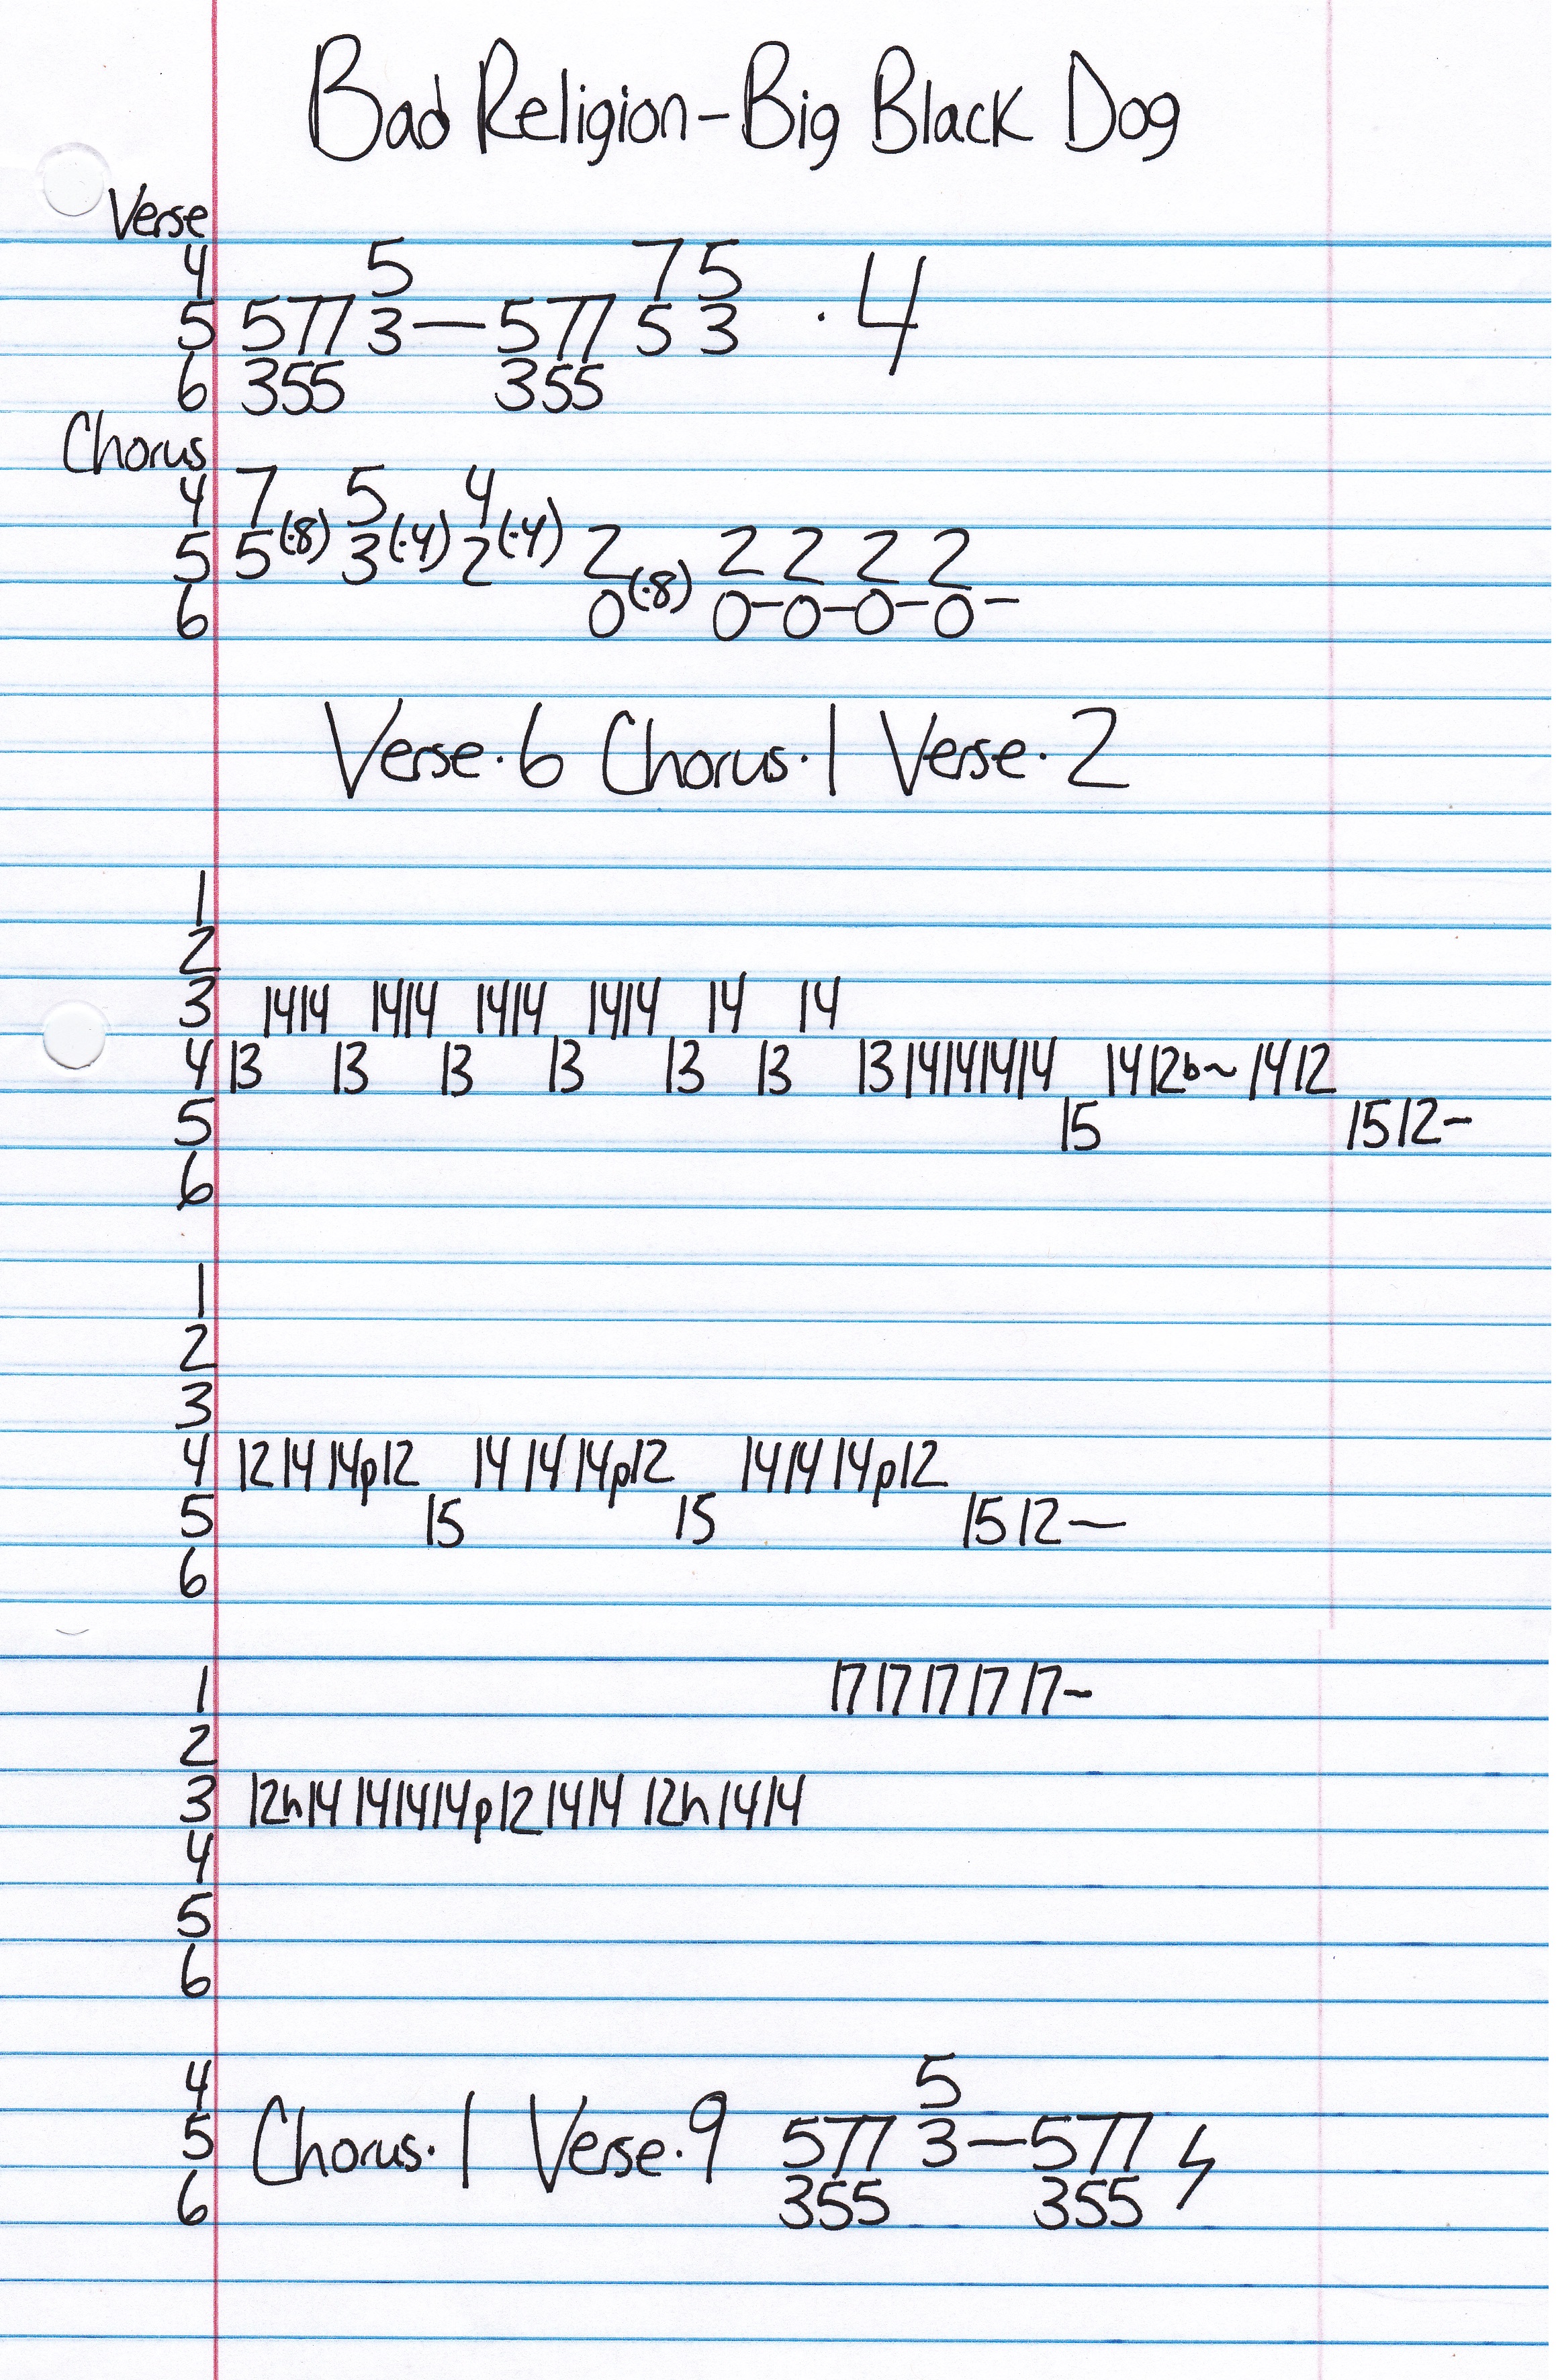 Bad Religion-Big Black Dog
Verse
4 5 7 5
5 577 3—577 5 3 ·4
6 355 355
Chorus
4 7 5 4
5 5(·8) 3(·4) 2(·4) 2 2 2 2 2
6 0(·8) 0-0-0-0-
Verse·6 Chorus·1 Verse·2
1
2
3 1414 1414 1414 1414 14 14
4 13 13 13 13 13 13 13 14141414 14 12b~ 14 12
5 15 15 12-
6
1
2
3
4 12 14 14p12 14 14 14p12 14 14 14p12
5 15 15 15 12—
6
1 17 17 17 17 17~
2
3 12h14 14 14 14p12 14 14 12h14 14
4
5
6
4 5
5 Chorus·1 Verse·9 577 3—577
6 355 355